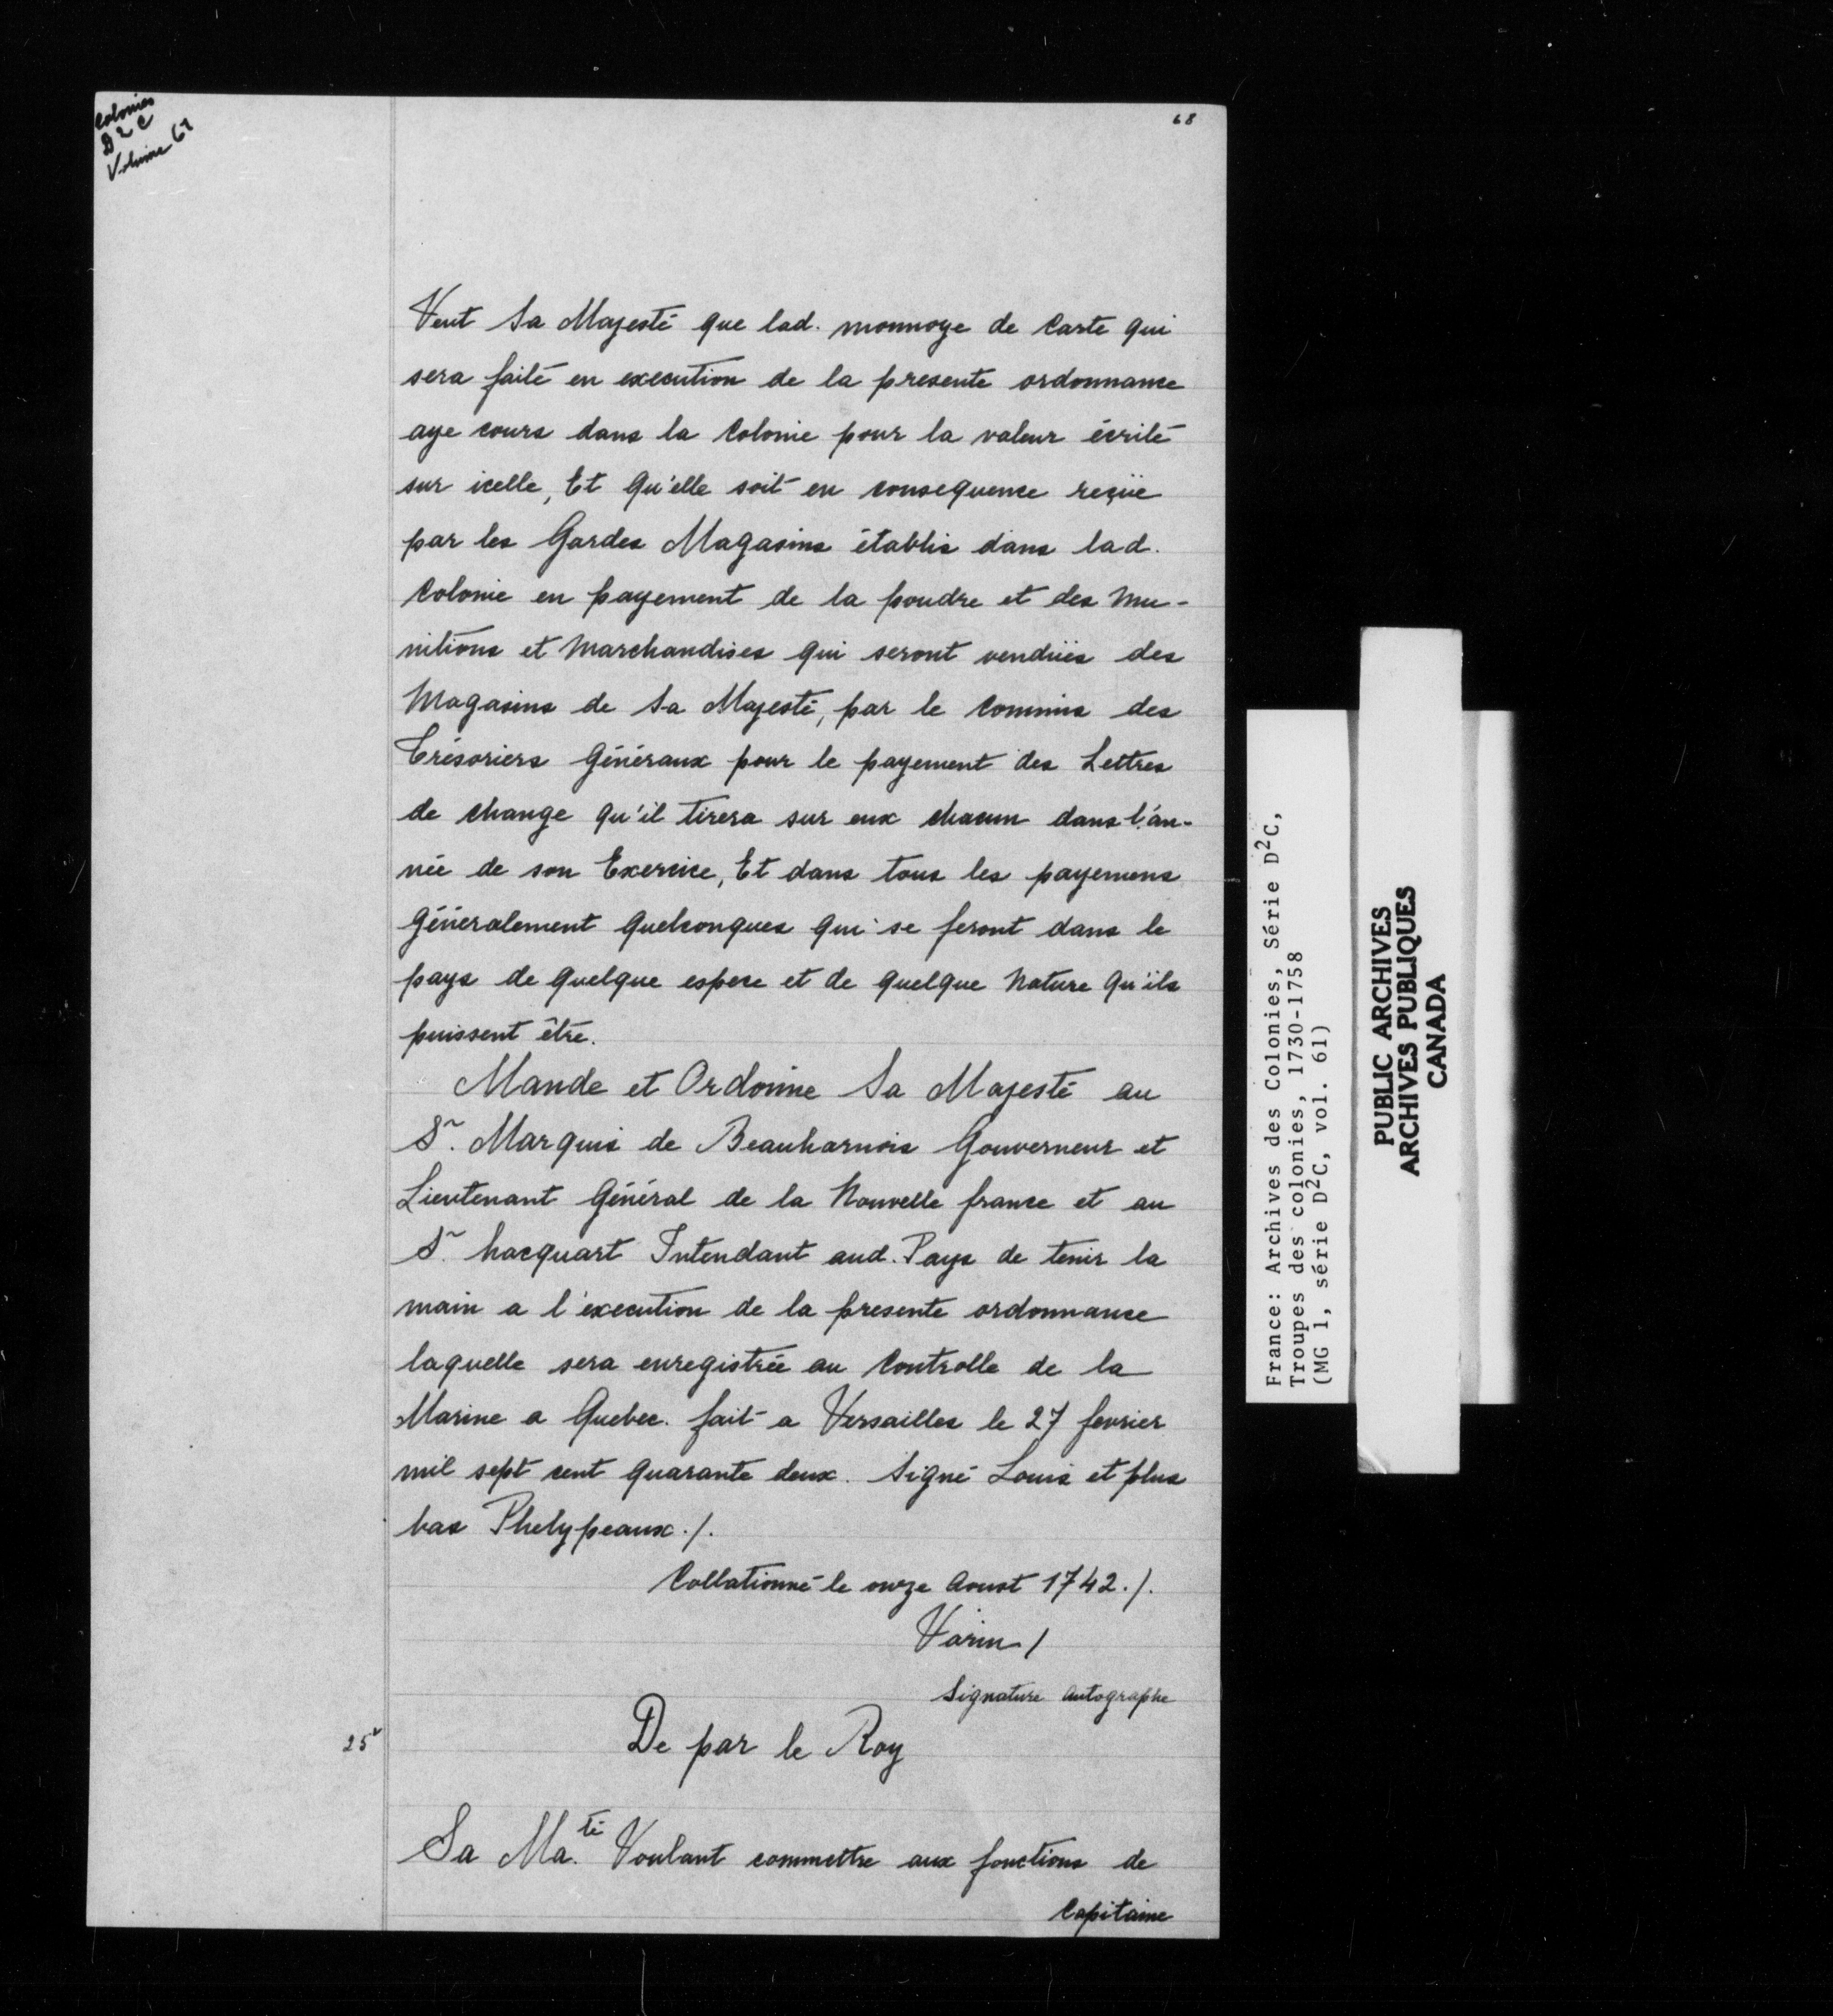 Colonies
D2C
Volume 61
68
Veut Sa Majesté que lad. monnoye de Carte qui
sera faite en execution de la presente ordonnance
aye cours dans la Colonie pour la valeur écrite
sur icelle, Et qu'elle soit en consequence reçüe
par les Gardes Magasins établis dans lad.
Colonie en payement de la poudre et des mu-
nitions et marchandises qui seront vendües des
Magasins de Sa Majesté, par le Commis des
Trésoriers Généraux pour le payement des Lettres
de change qu'il tirera sur eux chacun dans l'an-
née de son Exercice, Et dans tous les payemens
généralement quelconques qui se feront dans le
pays de quelque espece et de quelque Nature qu'ils
puissent être.
Mande et Ordonne Sa Majesté au
Sr. Marquis de Beauharnois Gouverneur et
Lieutenant Général de la Nouvelle france et au
Sr. hocquart Intendant aud. Pays de tenir la
main a l'execution de la presente ordonnance
laquelle sera enregistrée au Controlle de la
Marine a Quebec. fait a Versailles le 27 fevrier
mil sept cent quarante deux. Signé Louis et plus
bas Phelypeaux ./.
Collationné le onze Aoust 1742 ./.
Varin /
Signature autographe
25
De par le Roy
Sa Ma.té Voulant commettre aux fonctions de
Capitaine
France: Archives des Colonies, Série D2C,
Troupes des colonies, 1730-1758
(MG 1, série D2C, vol. 61)
PUBLIC ARCHIVES
ARCHIVES PUBLIQUES
CANADA